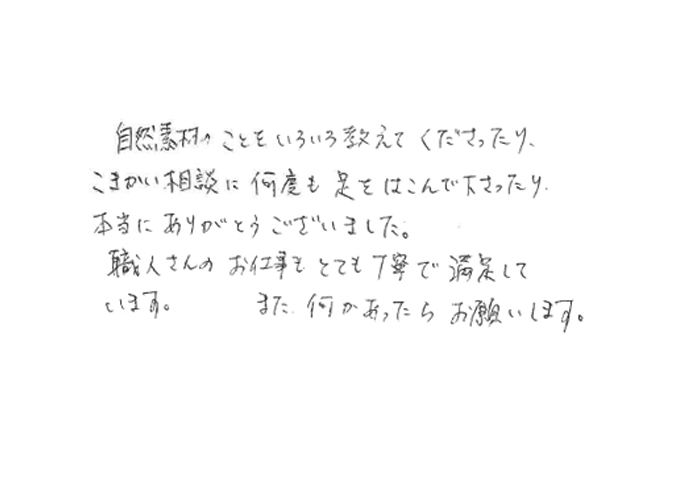 自然素材のことをいろいろ教えてくださったり、
こまかい相談に何度も足をはこんで下さったり、
本当にありがとうございました。
職人さんのお仕事もとても丁寧で満足して
います。 また何かあったらお願いします。